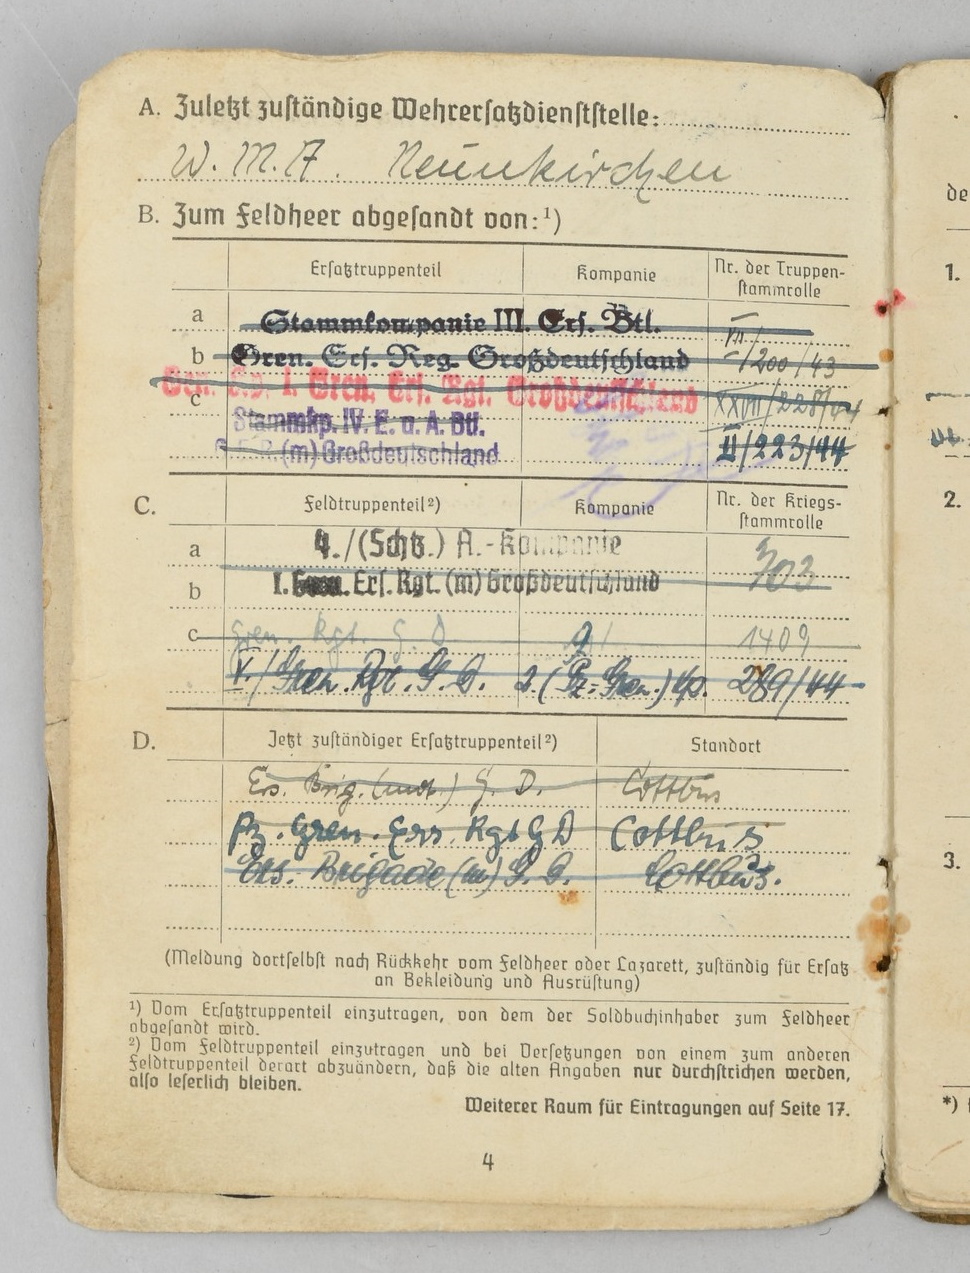 A. Zuletzt zuständige Wehrersatzdienststelle:
W. M. A. Neunkirchen
B. Zum Feldheer abgesandt von:¹)
Ersatztruppenteil Kompanie Nr. der Truppen-
stammrolle
a Stammkompanie III. Ers. Btl.
b Gren. Ers. Reg. Großdeutschland 200/43
Gen. Kp. I. Gren. Ers. Rgt. Großdeutschland
c XXVII/228/44
Stammkp. IV. E. u. A. Btl. II/223/44
(m) Großdeutschland
C. Feldtruppenteil²) Kompanie Nr. der Kriegs-
stammrolle
a 4./(Schtz.) A.-Kompanie 703
b I. Ers. Rgt. (m) Großdeutschland
c Gren. Rgt. G. D. 1409
V./Gren. Rgt. G. D. 2. (Pz.-Gren.) Kp. 289/44
D. Jetzt zuständiger Ersatztruppenteil²) Standort
Ers. Brig. (mot.) G. D. Cottbus
Pz. Gren. Ers. Rgt G D Cottbus
Ers. Brigade (m) G. D. Cottbus.
(Meldung dortselbst nach Rückkehr vom Feldheer oder Lazarett, zuständig für Ersatz
an Bekleidung und Ausrüstung)
¹) Vom Ersatztruppenteil einzutragen, von dem der Soldbuchinhaber zum Feldheer
abgesandt wird.
²) Vom Feldtruppenteil einzutragen und bei Versetzungen von einem zum anderen
Feldtruppenteil derart abzuändern, daß die alten Angaben nur durchstrichen werden,
also leserlich bleiben.
Weiterer Raum für Eintragungen auf Seite 17.
4
de
1.
2.
3.
*)